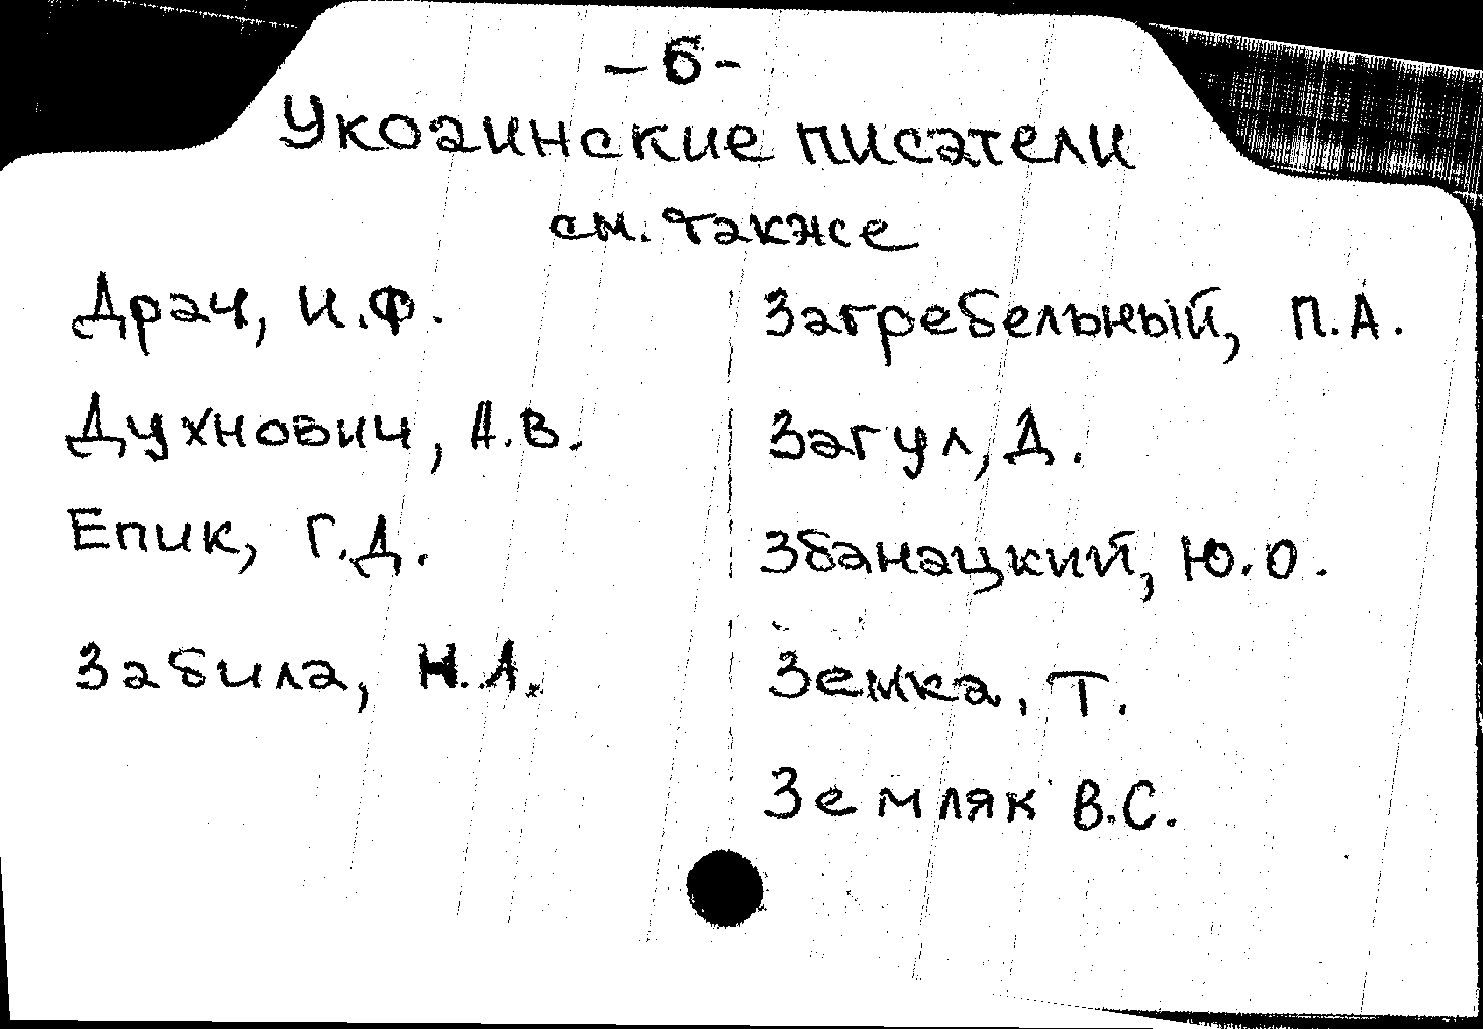 - 6 -
Украинские писатели
см. также
Драч, И.Ф.
Духнович, А.В.
Епик, Г.Д.
Забила, Н.А.
Загребельный, П.А.
Загул, Д.
Збанацкий, Ю.О.
Земка, Т.
Земляк В.С.